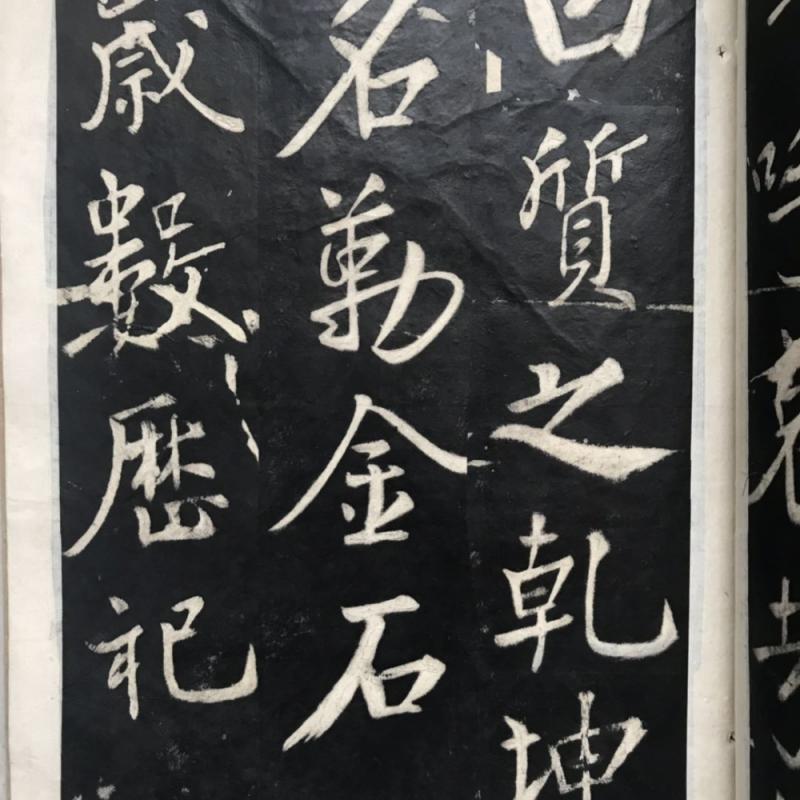 質之乾坤
名勒金石
歲數歷祀